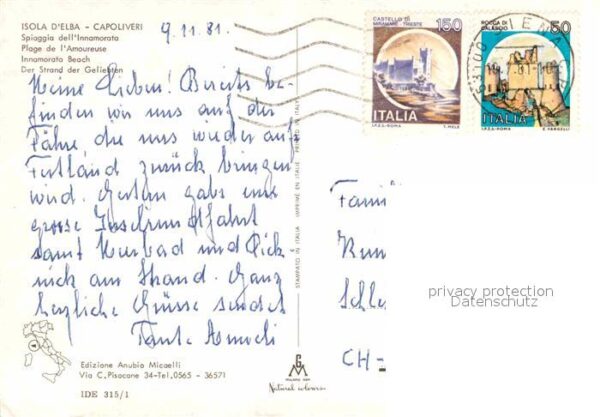 ISOLA D'ELBA - CAPOLIVERI
Spiaggia dell'Innamorata
Plage de l'Amoureuse
Innamorata Beach
Der Strand der Geliebten
9.11.81.
Meine Lieben! Bereits be-
finden wir uns auf der
Fähre die uns wieder aufs
Festland zurück bringen
wird. Gestern gabs eine
grosse Inselrundfahrt
samt Meerbad und Pick
nick am Strand. Ganz
herzliche Grüsse sendet
Tante
CASTELLO DI
MIRAMARE - TRIESTE
150
ITALIA
I.P.Z.S. - ROMA
T. MELE
ROCCA DI
CALASCIO
50
ITALIA
I.P.Z.S. - ROMA
E. VANGELLI
53100 SIENA
STAMPATO IN ITALIA - IMPRIMÉ EN ITALIE - PRINTED IN ITALY
Fami
Schle
CH-
privacy protection
Datenschutz
Edizione Anubio Micaelli
Via C. Pisacane 34-Tel. 0565 - 36571
IDE 315/1
GM
Natural colours